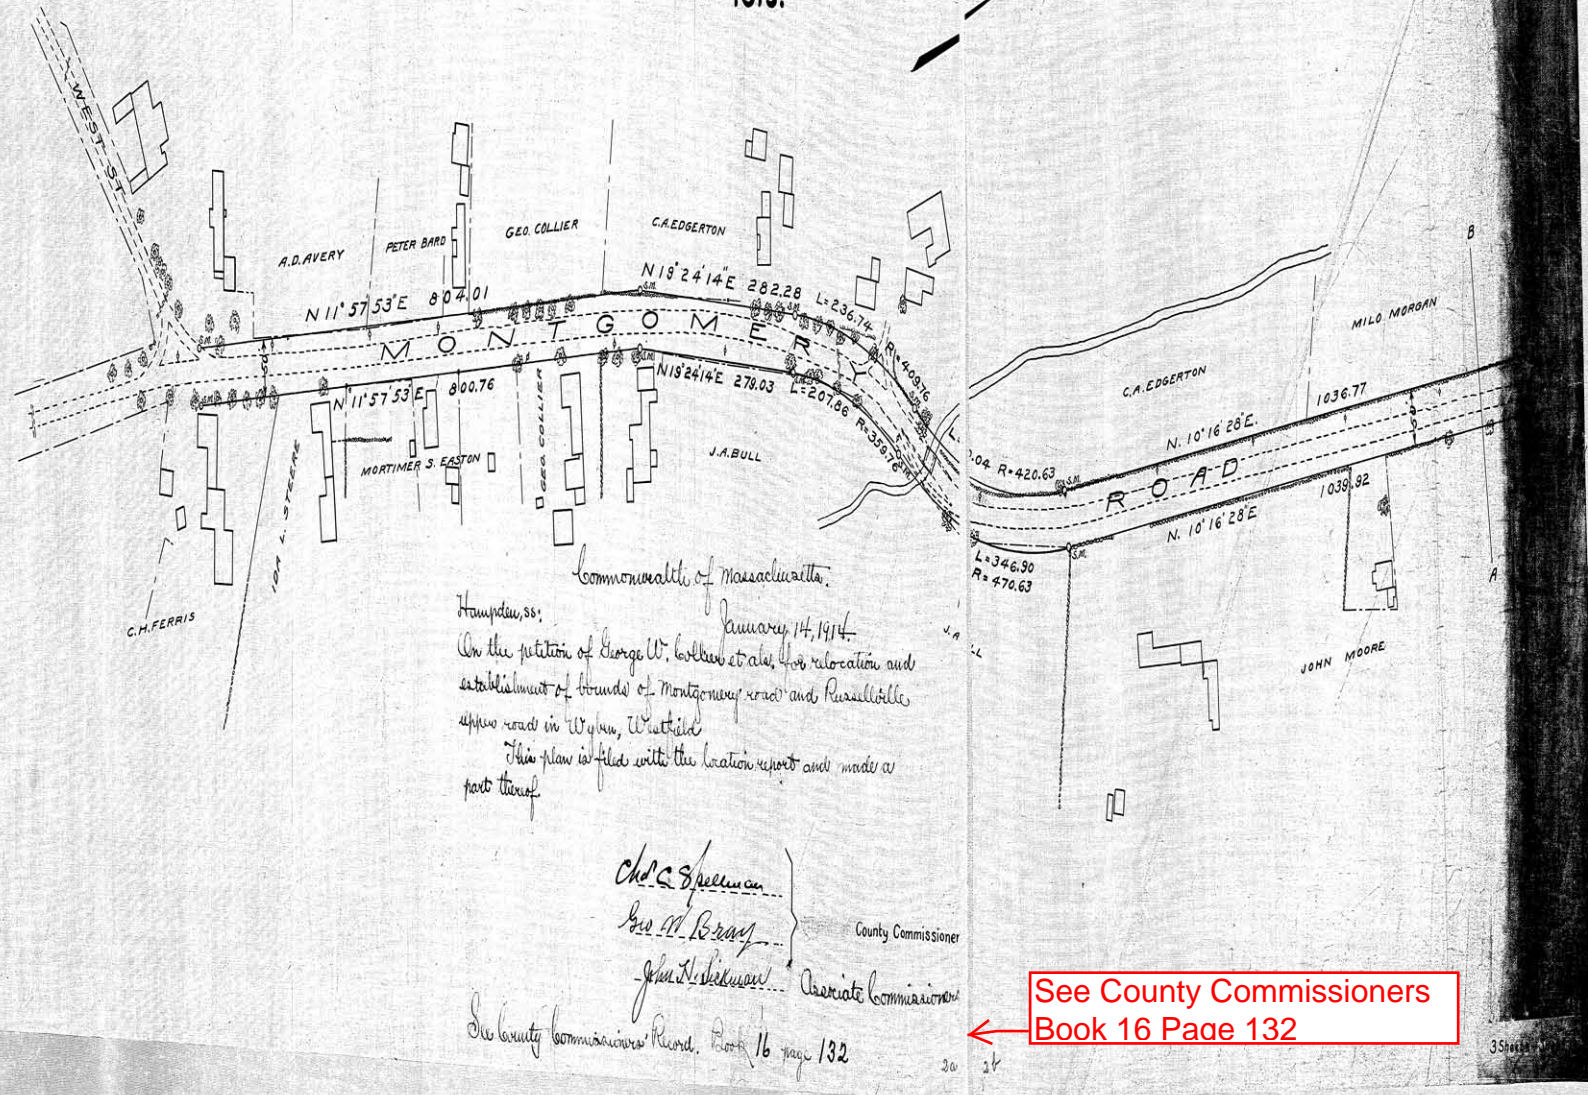 WEST ST.
A.D. AVERY
PETER BARD
GEO. COLLIER
C.A. EDGERTON
N 11° 57' 53" E 804.01
N 19° 24' 14" E 282.28
S.M.
L=236.74
R=409.76
MONTGOMERY
50
N 11° 57' 53" E 800.76
N 19° 24' 14" E 279.03
L=207.86
R=359.76
S.M.
IDA L. STEERE
MORTIMER S. EASTON
GEO. COLLIER
J.A. BULL
C.H. FERRIS
B
MILO MORGAN
C.A. EDGERTON
1036.77
N. 10° 16' 28" E.
.04 R=420.63
S.M.
ROAD
1039.92
N. 10° 16' 28" E
S.M.
L=346.90
R=470.63
A
JOHN MOORE
J. A
LL
Commonwealth of Massachusetts.
Hampden, ss:
January 14, 1914.
On the petition of George W. Collier et als. for relocation and
establishment of bounds of Montgomery road and Russellville
upper road in Wyben, Westfield
This plan is filed with the location report and made a
part thereof.
Chas C. Spellman
Geo W Bray
County Commissioner
John H. Sickman
Associate Commissioners
See County Commissioners' Record. Book 16 page 132
See County Commissioners
Book 16 Page 132
2a 2b
3 Sheets